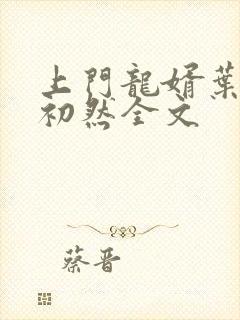 上門龍婿葉
初然全文
蔡晋